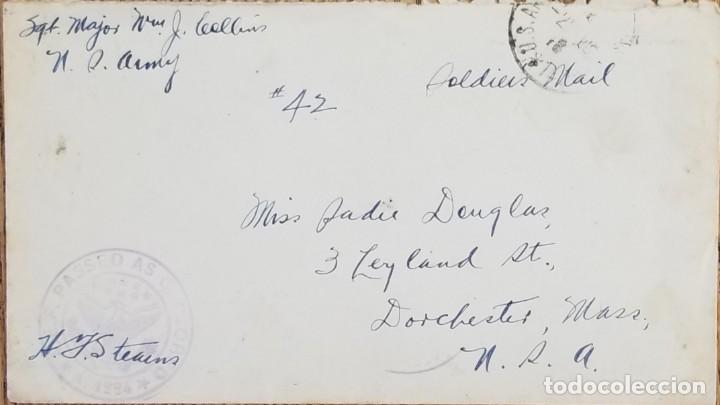 Sgt. Major Wm J. Collins
U. S. Army
Soldiers Mail
#42
Miss Sadie Douglas,
3 Leyland St.,
Dorchester, Mass.,
U. S. A.
PASSED AS
H. F. Stearns
todocoleccion